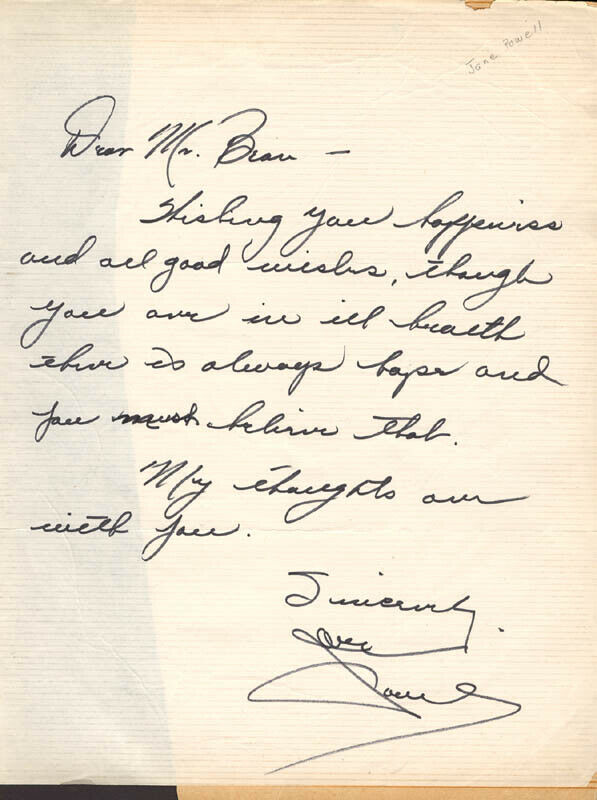 Jane Powell
Dear Mr. Bean -
Wishing you happiness
and all good wishes, though
you are in ill health
there is always hope and
you must believe that.
My thoughts are
with you.
Sincerely,
Jane
Powell